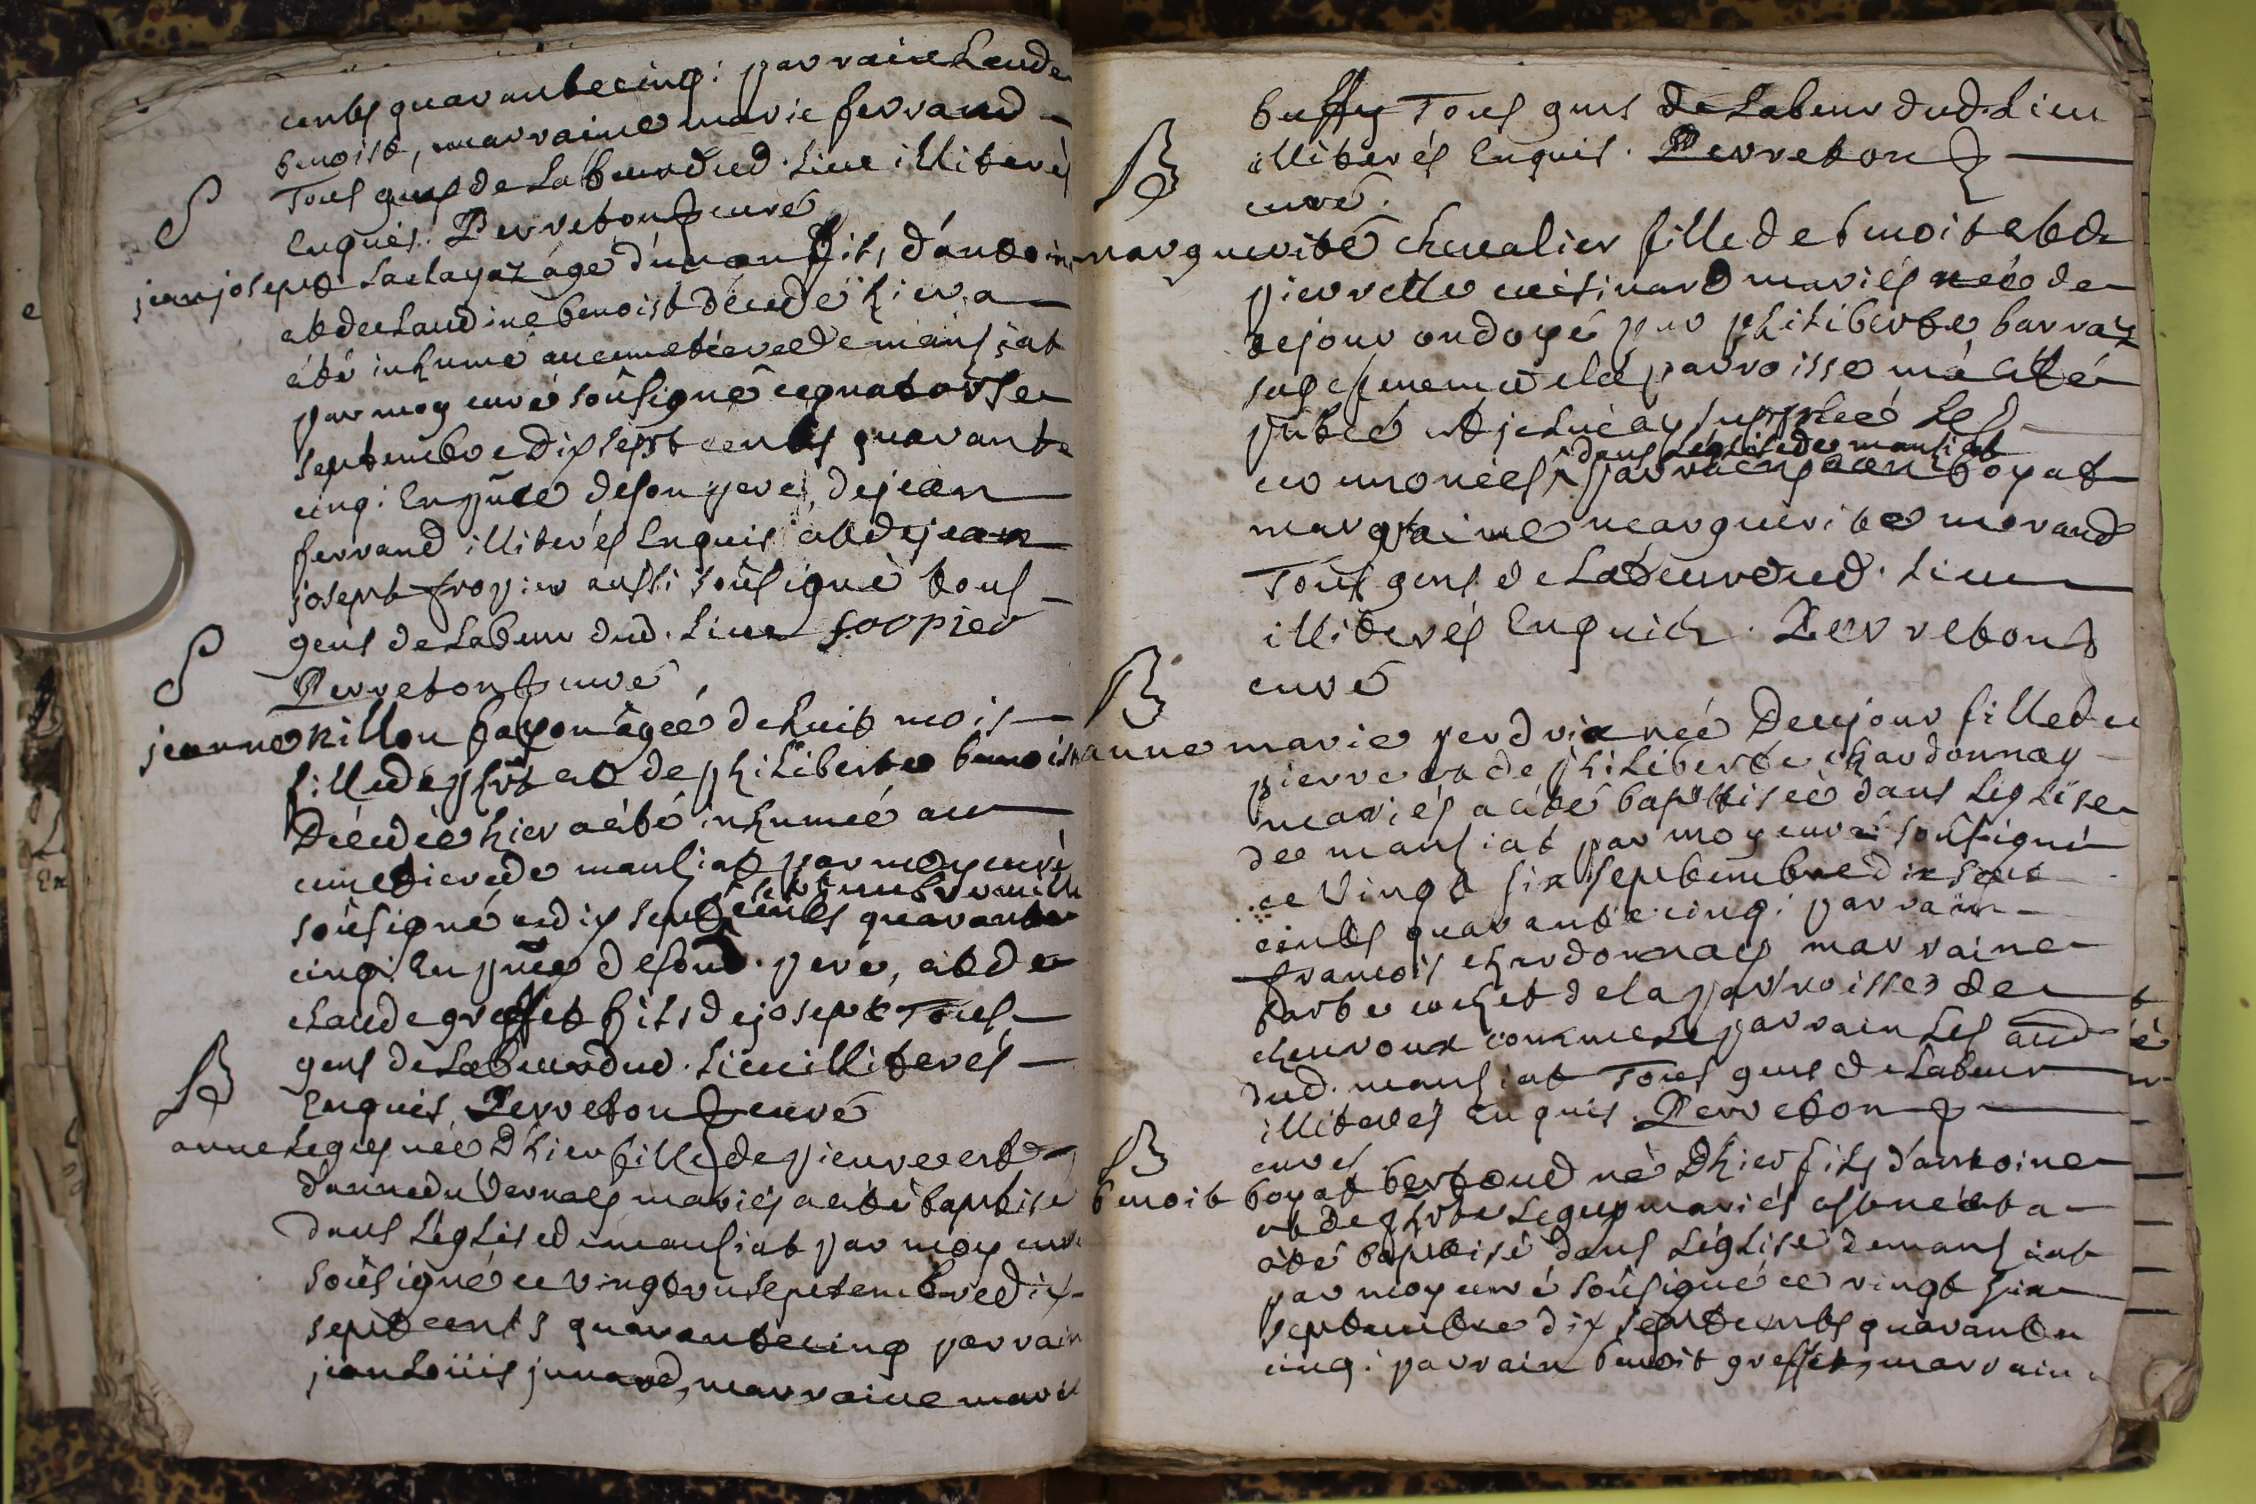 cents quarante cinq: parrain Claude
benoist, marraine marie ferrand
Tous gens de Labeur dud. Lieu illiterés
Enquis. Perreton curé
S
jean joseph Laclayaz âgé d'un an fils d'antoine
et de claudine benoist décédé hier a
été inhumé au cimetiere de mansiat
par moy curé soûsigné ce quatorse
septembre dix sept cents quarante
cinq: En pñce de son pere, de jean
ferrand illiterés Enquis et de jean
josept fropier aussi soûsigné tous
gens de Labeur dud. Lieu fropier
Perreton curé
S
jeanne nillon fayon âgée de huit mois
fille de et de philiberte benoist
Décédée hier a été inhumée au
cimetiere de mansiat par moy curé
septembre mille
soûsigné ce dix sept cents quarante
cinq. En pñce de sond. pere, et de
claude greffet fils de josept Tous
gens de Labeur dud. Lieu illiterés
Enquis Perreton curé
B
anne Leguy née D'hier fille de pierre et
d'anne du Vernaey mariés a été baptisé
dans L'église de mansiat par moy curé
soûsigné ce vingt un septembre dix
sept cents quarante cinq parrain
jean Loüis junard, marraine marie
buffy Tous gens de Labeur dud. Lieu
illiterés Enquis. Perreton
curé.
B
marguerite chevalier fille de benoit et de
pierrette mariés née de
ce jour ondoyé par philiberte barraz
sage femme de la parroisse m'a été
et je luÿ ay supplée les
dans L'église de mansiat
ceremonies ^ parrain jean boyat
marraine marguerite morand
Tous gens de Labeur dud. Lieu
illiterés Enquis. Perreton
curé
B
anne marie perdrix née De ce jour fille de
pierre et de philiberte chardonnay
mariés a été baptisée dans L'église
de mansiat par moy curé soûsigné
ce Vingt six septembre dix sept
cents quarante cinq: parrain
francois chardonnay marraine
barbe cochet de la parroisse de
chevroux comme le parrain Les aud
dud. mansiat Tous gens de Labeur
illiterés Enquis. Perreton
curé
B
benoit boyat bertoud né D'hier fils d'antoine
et de Leguy mariés et a
été baptisé dans L'église de mansiat
par moy curé soûsigné ce vingt six
septembre dix sept cents quarante
cinq: parrain benoit greffet, marraine